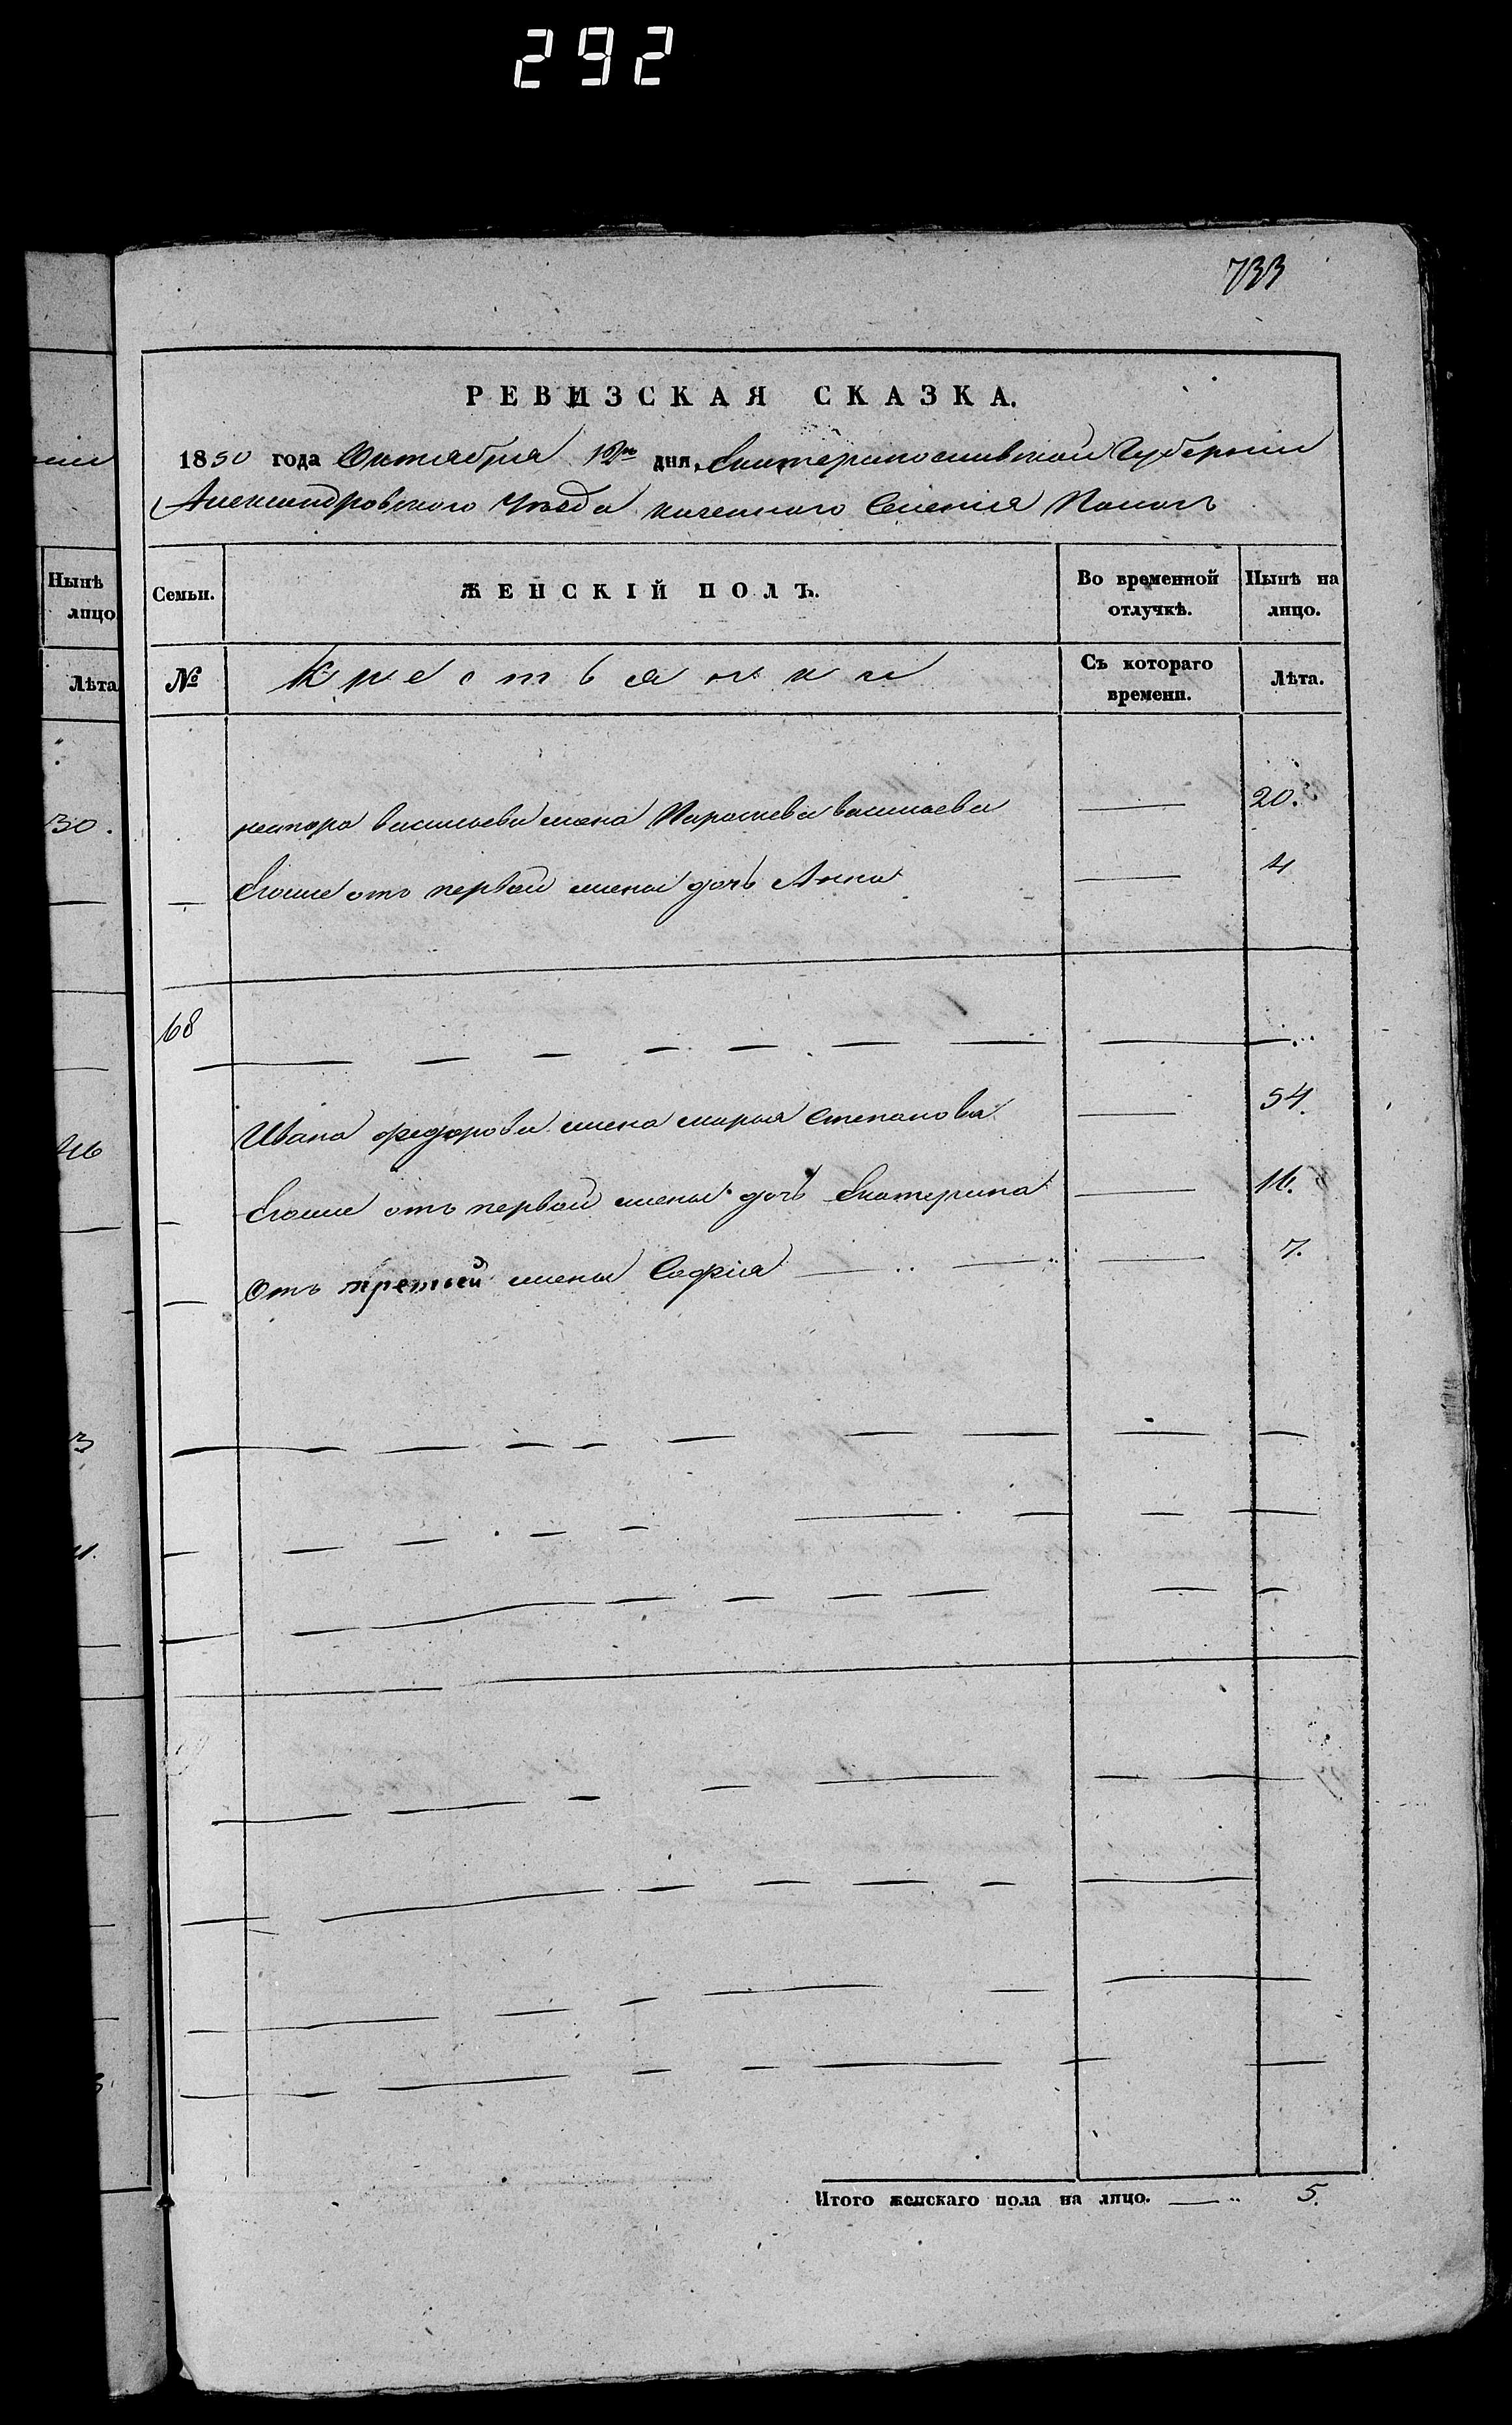 292
733
РЕВИЗСКАЯ СКАЗКА.
1850 года Октября дня, Екатеринославской Губернии
Александровского Уезда казенного Селения
Нынѣ
лицо
Лѣта
Семьи.
ЖЕНСКІЙ ПОЛЪ.
Во временной
отлучкѣ.
Нынѣ на
лицо.
№
Крестьянки
Съ котораго
времени.
Лѣта.
30.
Нестора Васильева жена Парасковья Васильева 20.
Егоже отъ первой жены дочь Анна 4
68
46
Ивана Федорова жена Марья Степанова 54.
Егоже отъ первой жены дочь Екатерина 16.
Отъ третьей жены Софія 7.
Итого женскаго пола на лицо. 5.